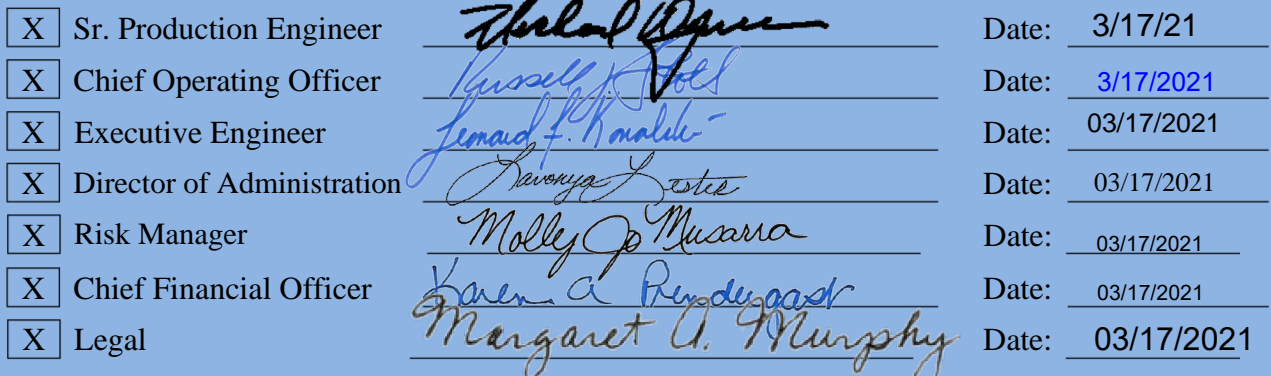 X Sr. Production Engineer Date: 3/17/21
X Chief Operating Officer Russell J. Date: 3/17/2021
X Executive Engineer Leonard F. Date: 03/17/2021
X Director of Administration Lavonya Lester Date: 03/17/2021
X Risk Manager Molly Jo Musarra Date: 03/17/2021
X Chief Financial Officer Karen A Prendergast Date: 03/17/2021
X Legal Margaret A. Murphy Date: 03/17/2021